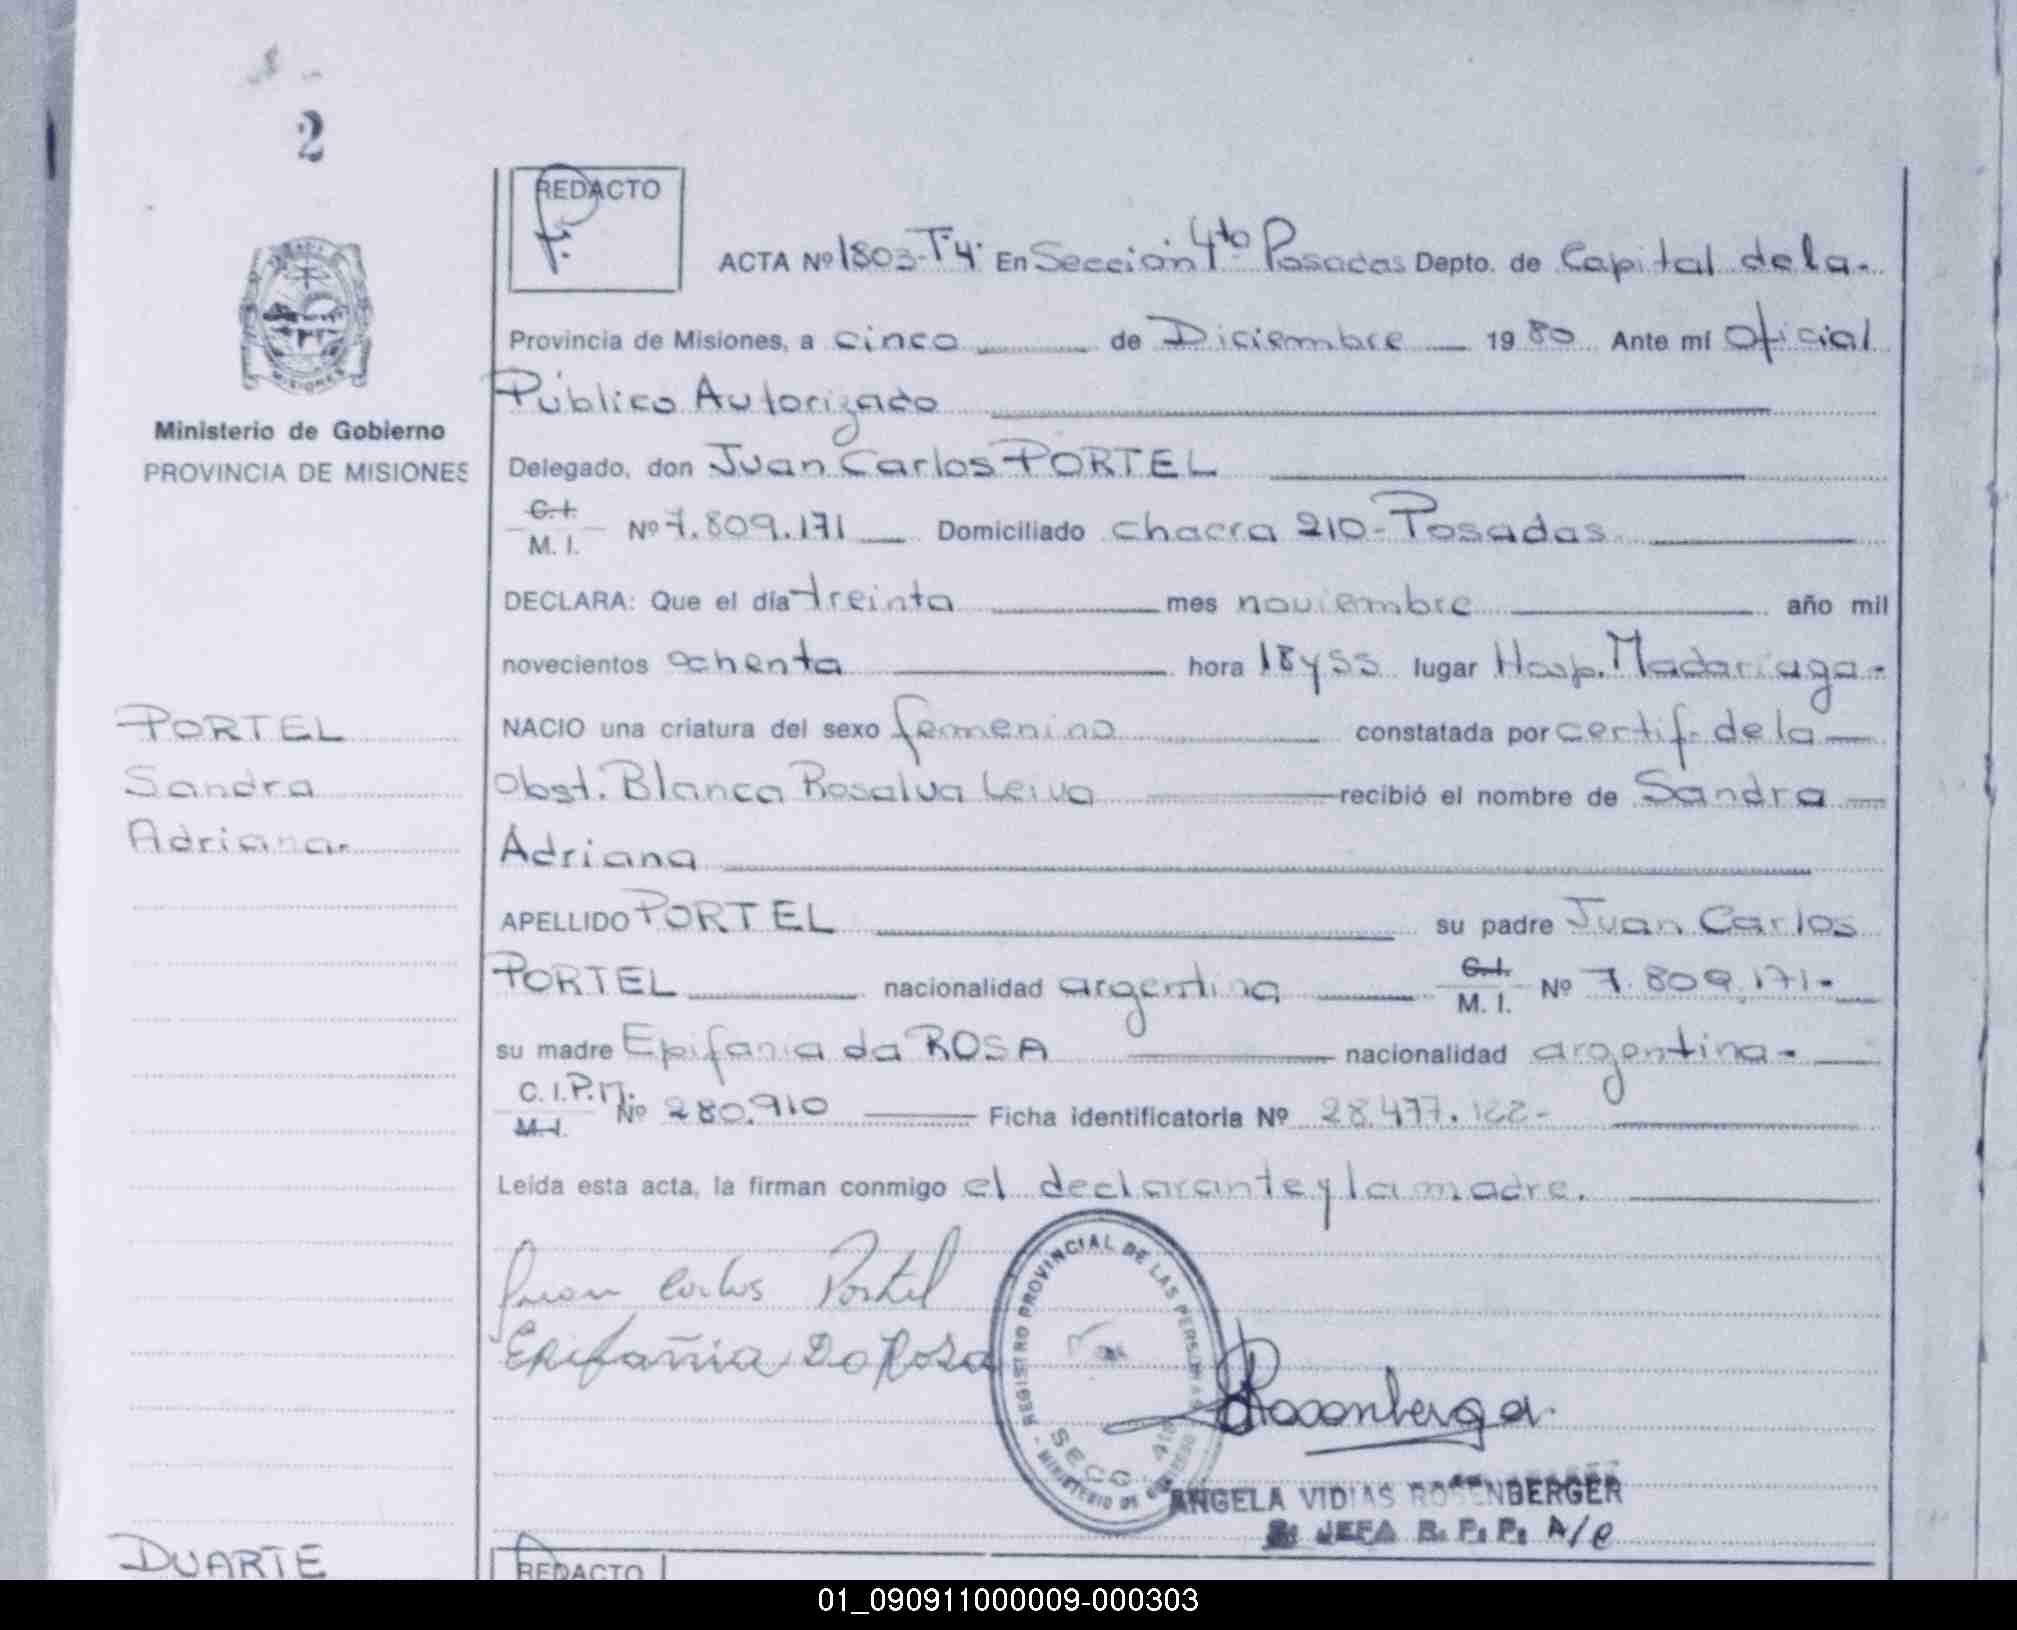 2
REDACTO
ACTA Nº 1803-Tº4º En Sección 4to Posadas Depto. de Capital de la.
Provincia de Misiones, a cinco de Diciembre 1980 Ante mí Oficial
Público Autorizado
Ministerio de Gobierno
PROVINCIA DE MISIONES
Delegado, don Juan Carlos PORTEL
C.I. M.I. Nº 7.809.171 Domiciliado chacra 210-Posadas
DECLARA: Que el día treinta mes noviembre año mil
novecientos ochenta hora 18 y 55 lugar Hosp. Madariaga-
PORTEL
Sandra
Adriana-
NACIO una criatura del sexo femenino constatada por certif. de la
Obst. Blanca Rosalva Leiva recibió el nombre de Sandra
Adriana
APELLIDO PORTEL su padre Juan Carlos
PORTEL nacionalidad argentina C.I. M.I. Nº 7.809.171-
su madre Epifania da ROSA nacionalidad argentina-
C.I.P.M. M.I. Nº 280.910 Ficha identificatoria Nº 28.477.122-
Leída esta acta, la firman conmigo el declarante y la madre.
Juan Carlos Portel
Epifañia Da Rosa
REGISTRO PROVINCIAL DE LAS PERSONAS
MINISTERIO DE
SECC. 4ta
Rosenberger
ANGELA VIDIAS ROSENBERGER
JEFA R. P. P. A/C
DUARTE
REDACTO
01_090911000009-000303